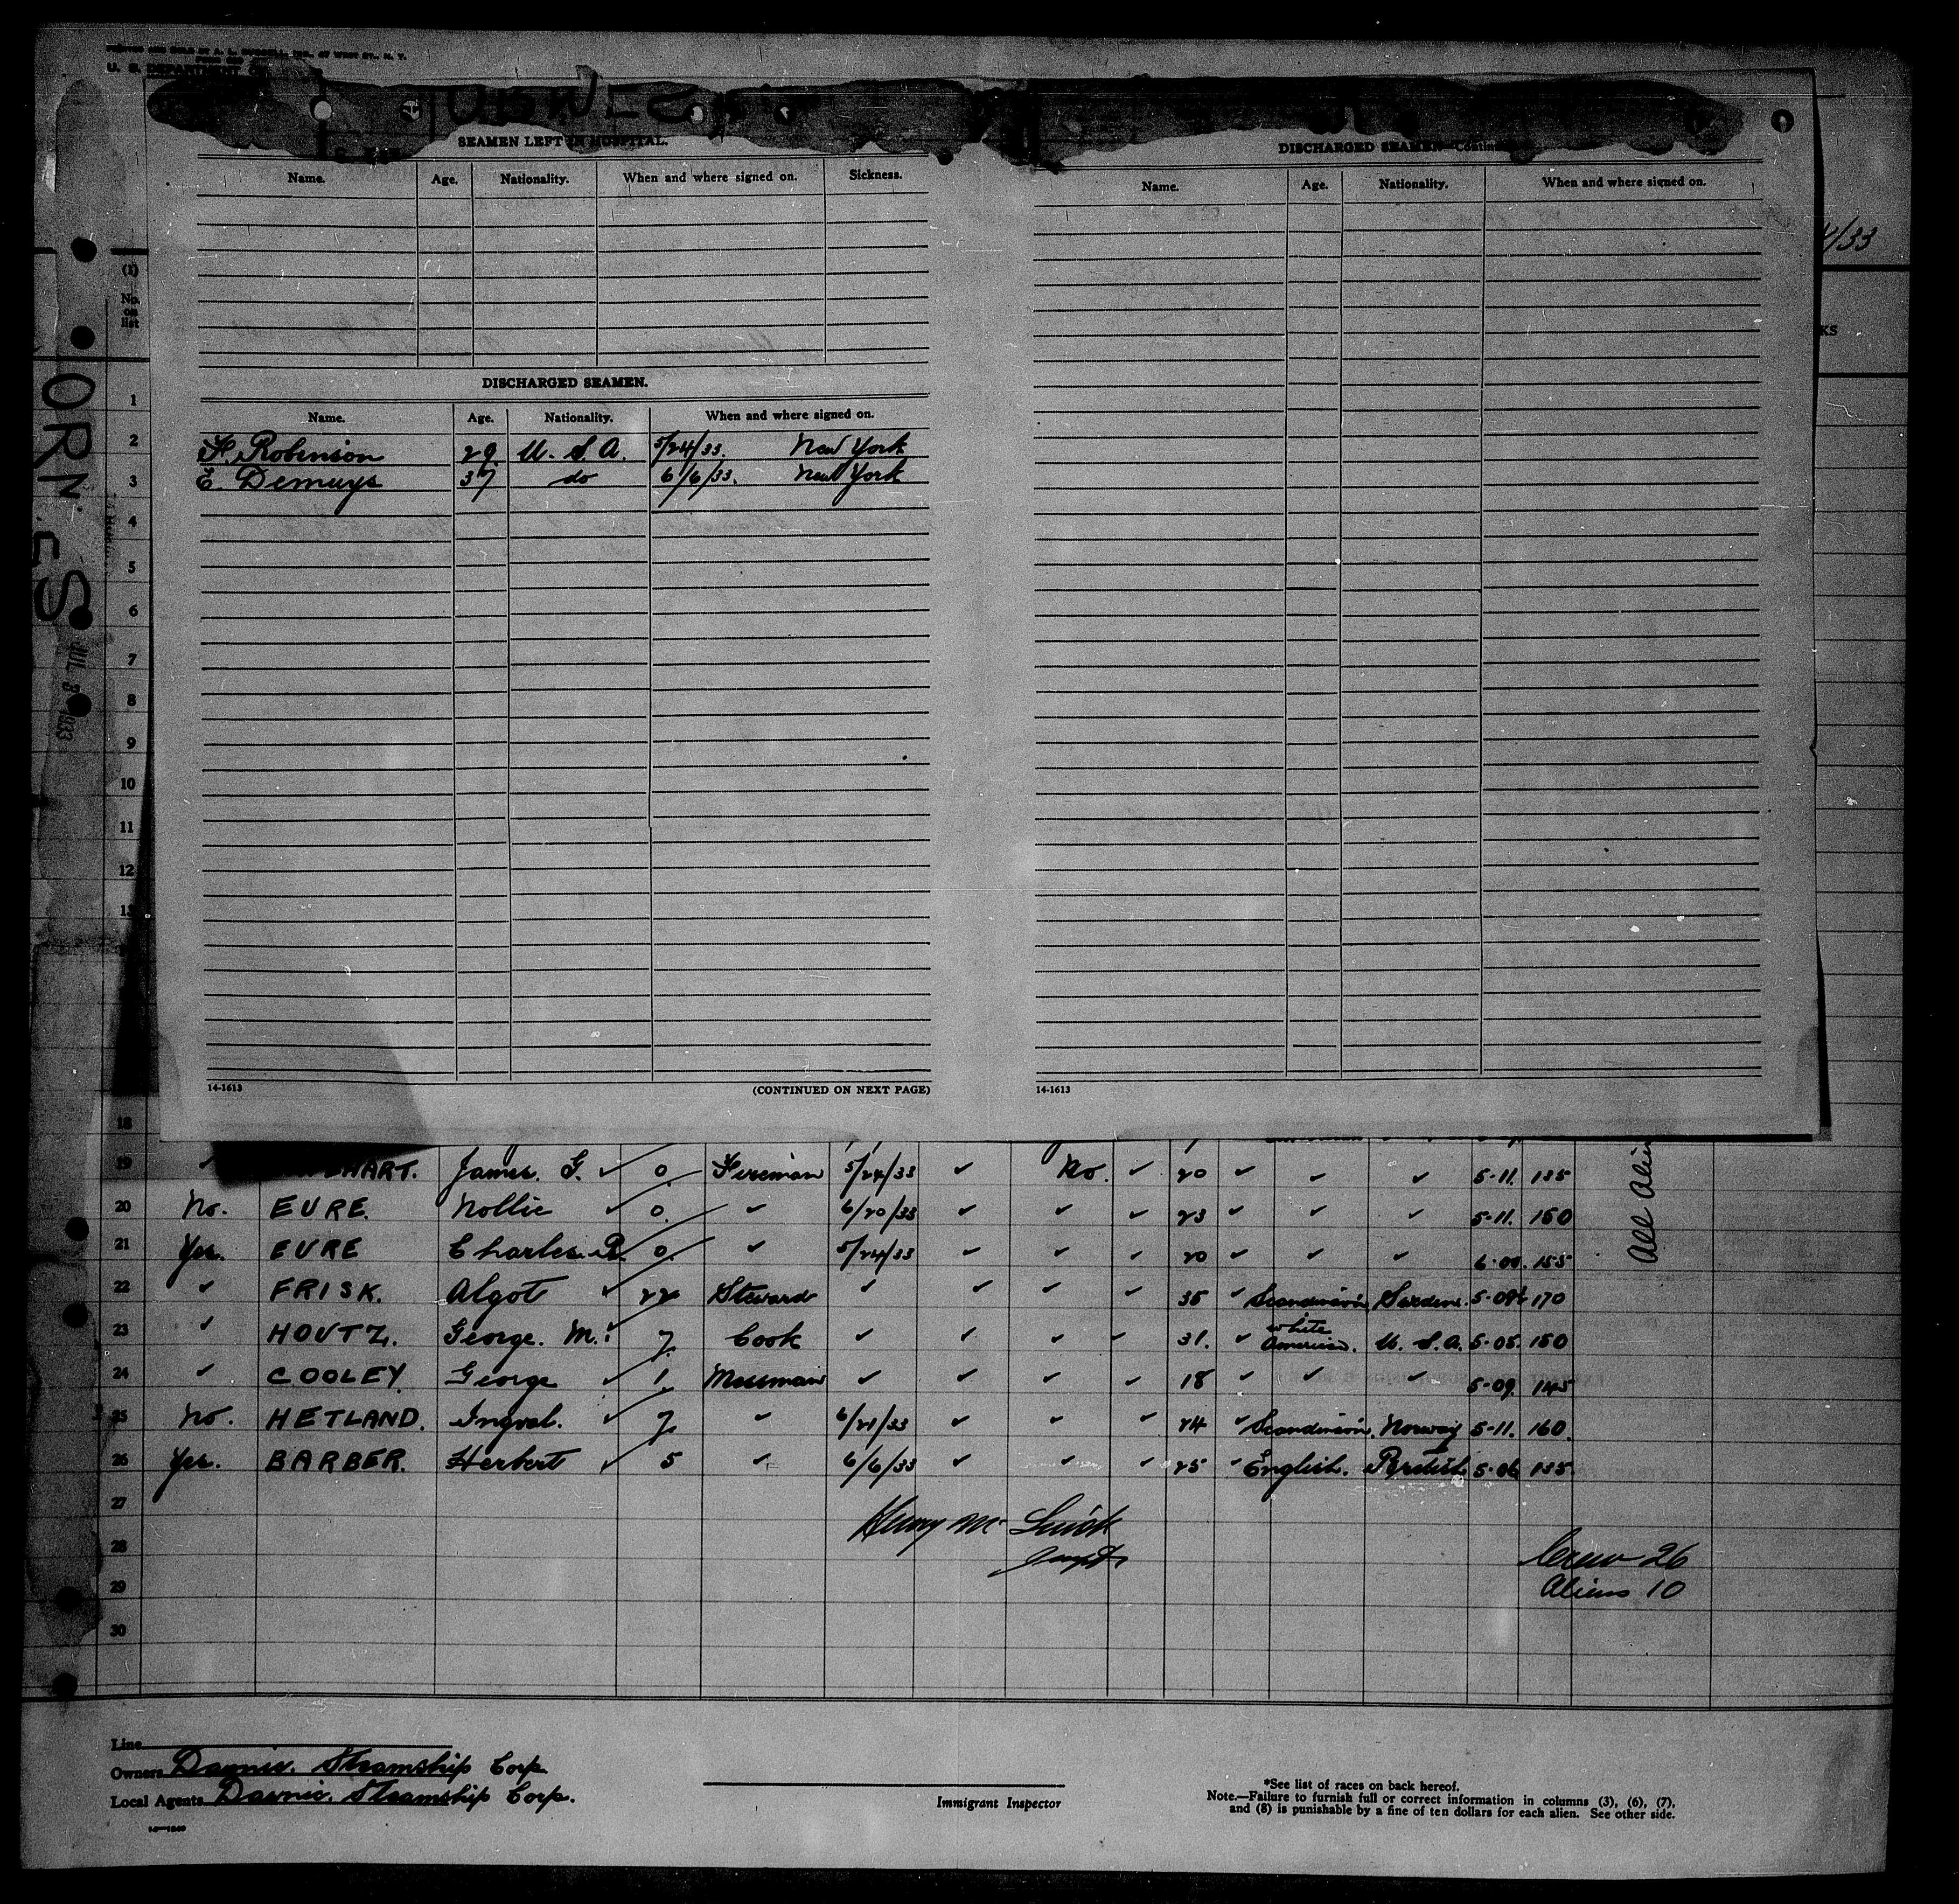 PRINTED AND SOLD BY A. L. RUSSELL, INC., 67 WEST ST., N. Y.
U. S. DEPARTMENT
SEAMEN LEFT IN HOSPITAL.
Name. Age. Nationality. When and where signed on. Sickness.
DISCHARGED SEAMEN.
Name. Age. Nationality. When and where signed on.
F. Robinson 29 U. S. A. 5/24/33. New York
E. Demuys 37 do 6/6/33. New York
14-1613 (CONTINUED ON NEXT PAGE)
DISCHARGED SEAMEN—Continued
Name. Age. Nationality. When and where signed on.
14-1613
/33
KS
(1)
No.
on
list
JUL 3 1933
1
2
3
4
5
6
7
8
9
10
11
12
13
18
19 ✓ HART. James. G. ✓ 0 Fireman 5/24/33 ✓ No. ✓ 20 ✓ ✓ ✓ 5-11. 135
20 No. EURE. Nollie ✓ 0. ✓ 6/20/33 ✓ ✓ ✓ 23 ✓ ✓ ✓ 5-11. 150
21 Yes. EURE Charles. R. 0. ✓ 5/24/33 ✓ ✓ ✓ 20 ✓ ✓ ✓ 6-00. 155
22 ✓ FRISK. Algot ✓ 22 Steward ✓ ✓ ✓ ✓ 35 ✓ Scandinavin. Sweden. 5-09½ 170
23 ✓ HOUTZ. George. M. 7. Cook ✓ ✓ ✓ ✓ 31. ✓ white American. U. S. A. 5-05. 150
24 ✓ COOLEY. George ✓ 1. Messman ✓ ✓ ✓ ✓ 18 ✓ ✓ ✓ 5-09. 145
25 No. HETLAND. Ingval. ✓ 7. ✓ 6/21/33 ✓ ✓ ✓ 24 ✓ Scandinavin. Norway 5-11. 160.
26 Yes. BARBER. Herbert ✓ 5 ✓ 6/6/33 ✓ ✓ ✓ 25 ✓ English. British 5-06 135.
27
28
29
30
Crew 26
Aliens 10
Line
Owners Steamship Corp.
Local Agents Steamship Corp.
Immigrant Inspector
*See list of races on back hereof.
Note.—Failure to furnish full or correct information in columns (3), (6), (7),
and (8) is punishable by a fine of ten dollars for each alien. See other side.